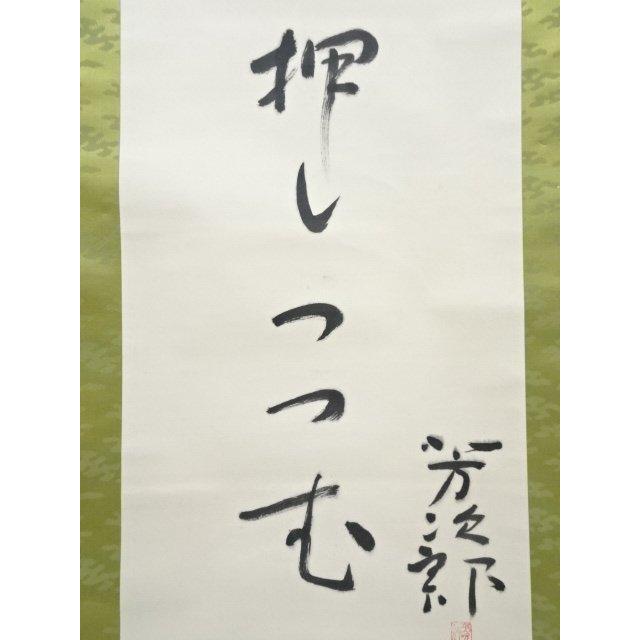 押しつつむ
芳次郎